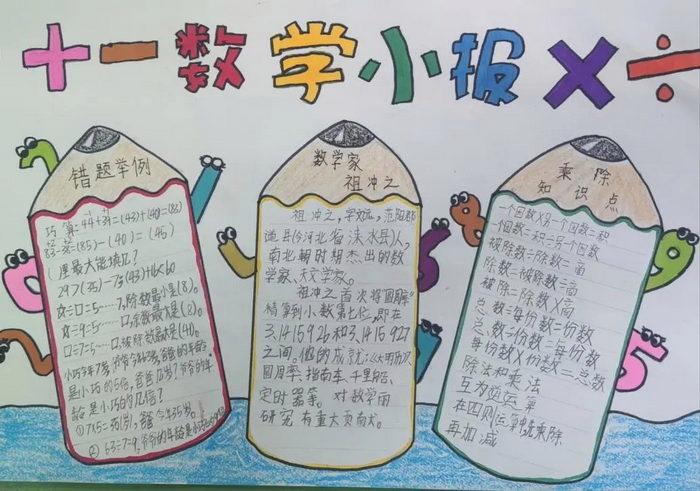 + 一 数学小报 × ÷
错题举例
巧算:44+39=(43)+(40)=(83)
83-38=(85)-(40)=(45)
( )里最大能填几?
29>7(35)-7 5(43)+16<60
小巧今年7岁,爷爷今年63岁,爸爸的年龄
是小巧的5倍,爸爸几岁?爷爷的年
龄是小巧的几倍?
①7×5=35(岁),爸爸今年35岁。
②63÷7=9,爷爷的年龄是小巧的9倍
数学家
祖冲之
祖冲之,字文远,范阳郡
遒县(今河北省涞水县)人,
南北朝时期杰出的数
学家、天文学家。
祖冲之首次将“圆周率”
精算到小数第七位,即在
3.1415926和3.1415927
之间,他的成就:《大明历》、
圆周率、指南车、千里船、
定时器等。对数学的
研究有重大贡献。
乘除
知识点
一个因数×另一个因数=积
一个因数=积÷另一个因数
被除数÷除数=商
除数=被除数÷商
被除=除数×商
总数÷每份数=份数
总数÷份数=每份数
每份数×份数=总数
除法和乘法
互为逆运算
在四则运算先乘除
再加减